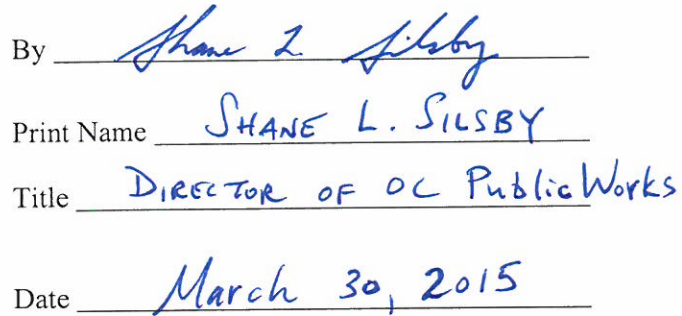 By Shane L. Silsby
Print Name SHANE L. SILSBY
Title DIRECTOR OF OC Public Works
Date March 30, 2015